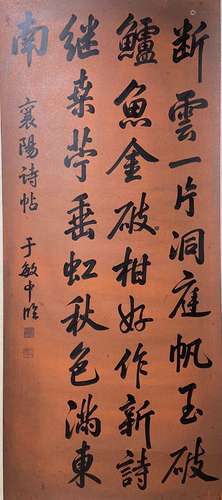 断雲一片洞庭帆玉破
鱸魚金破柑好作新詩
継桑苧垂虹秋色滿東
南
襄陽詩帖
于敏中臨